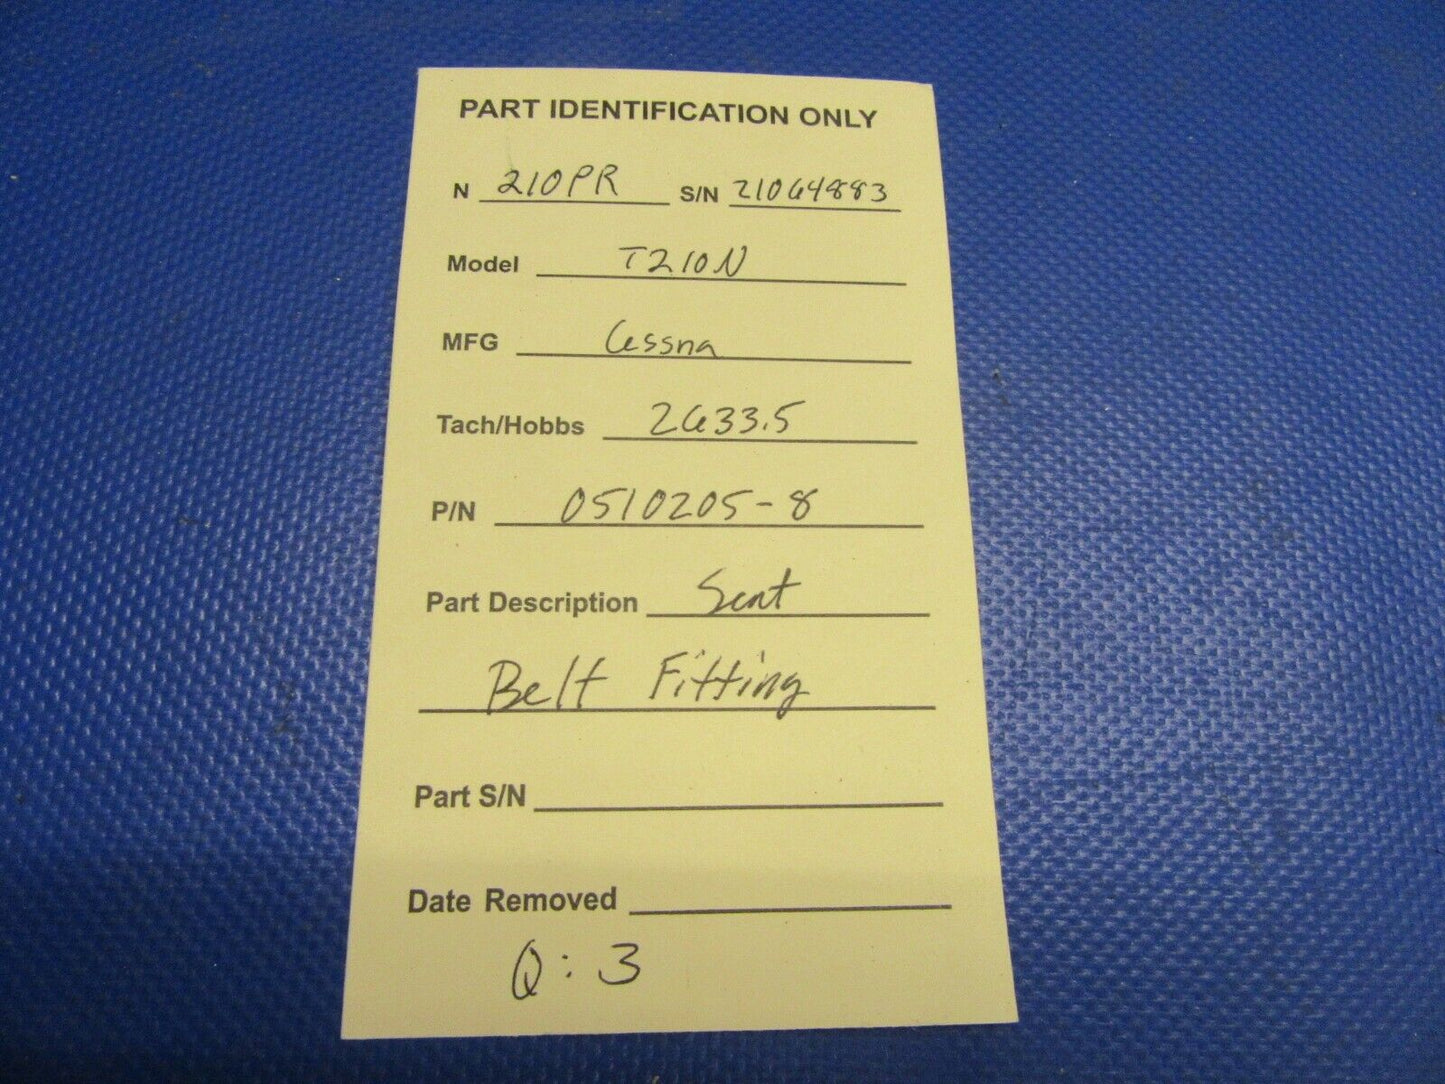 PART IDENTIFICATION ONLY
N 210PR S/N 21064883
Model T210N
MFG Cessna
Tach/Hobbs 2633.5
P/N 0510205-8
Part Description Seat
Belt Fitting
Part S/N
Date Removed
Q: 3